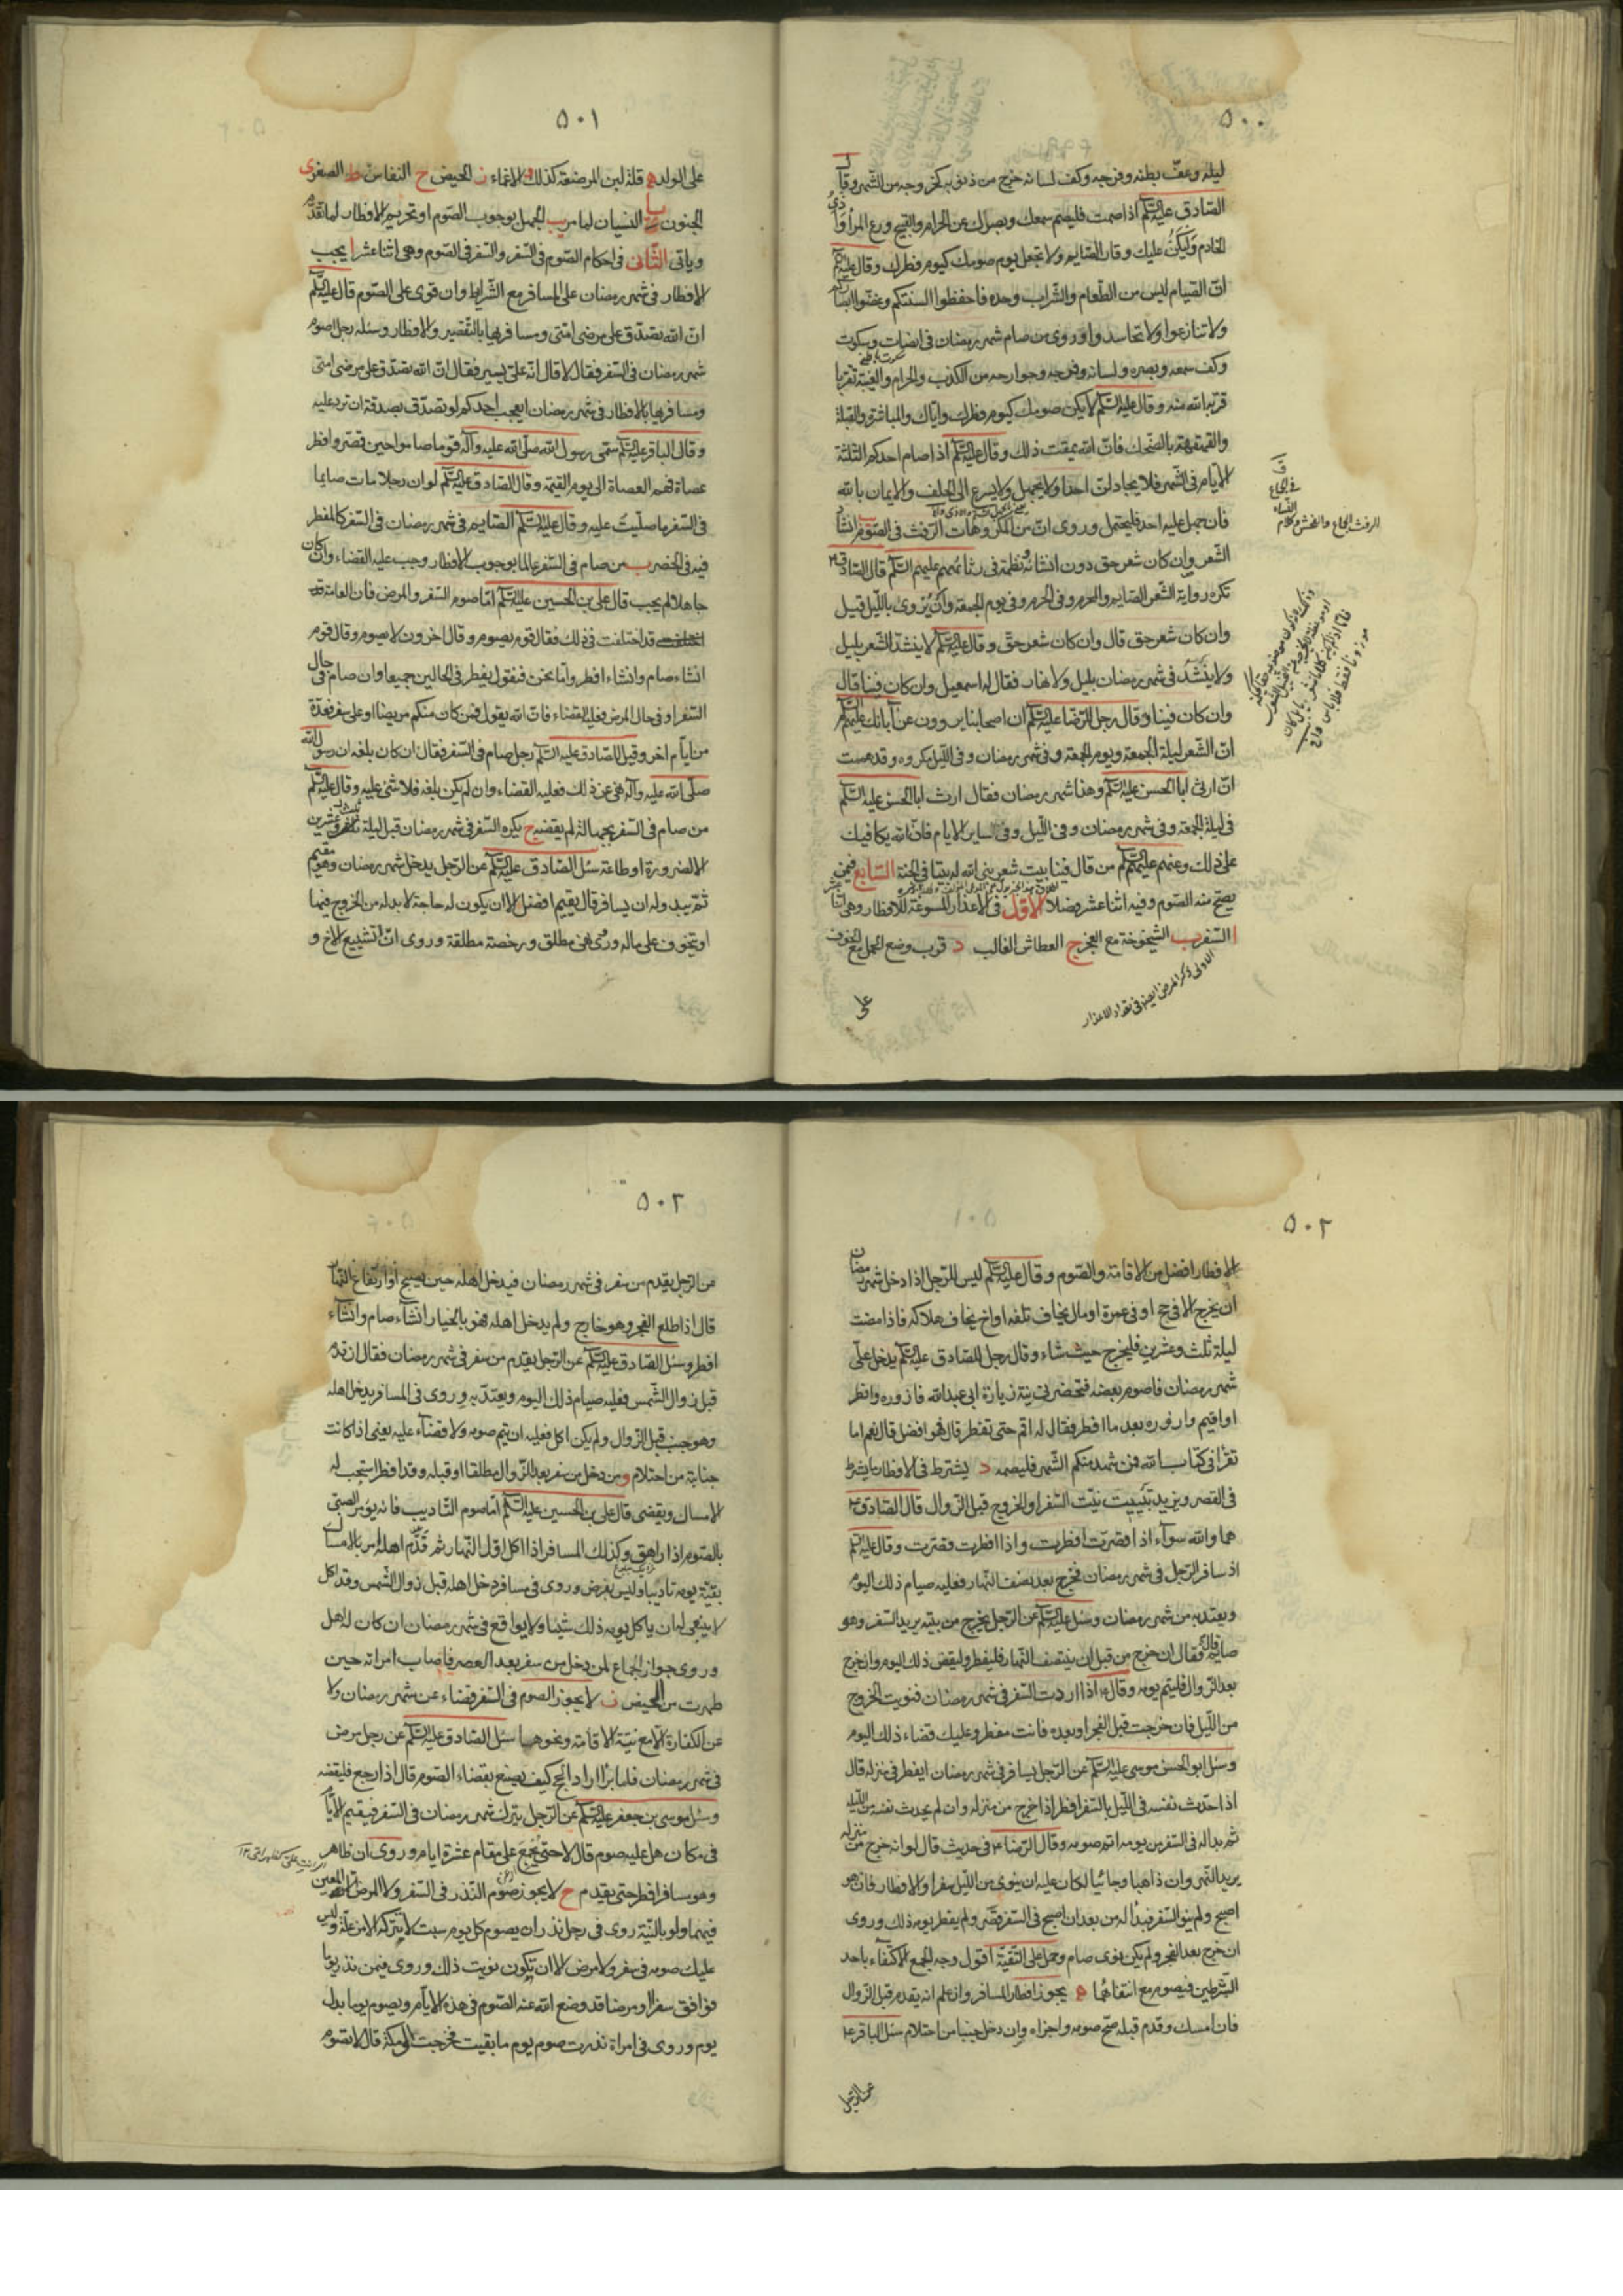 ٥٠٠
ليله وعفّ بطنه وفرجه وكف لسانه خرج من ذنوبه كخروجه من الشهر وقال
الصادق عليه السلم اذا صمت فليصم سمعك وبصرك عن الحرام والقبيح ودع المراء واذى
الخادم وليكن عليك وقار الصايم ولا تجعل يوم صومك كيوم فطرك وقال عليه السلم
انّ الصيام ليس من الطّعام والشّراب وحده فاحفظوا السنتكم وغضّوا ابصاركم
ولا تنازعوا ولا تحاسدوا وروى من صام شهر رمضان فى انصات وسكوت
وكف سمعه وبصره ولسانه وفرجه وجوارحه من الكذب والحرام والغيبة تقربا
قربه الله منه وقال عليه السلم لا يكن صومك كيوم فطرك واياك والمباشرة والقبلة
والقهقهة بالضّحك فانّ الله يمقت ذلك وقال عليه السلم اذا صام احدكم الثلثة
الايام فى الشّهر فلا يجادلنّ احدا ولا يجهل ولا يسرع الى الحلف والايمان بالله
فان جهل عليه احد فليحتمل وروى انّ من المكروهات الرّفث فى الصّوم ب انشاد
الشّعر وان كان شعر حق دون انشائه ونظمه فى رثائهم عليهم السلم قال الصادق ع
تكره رواية الشّعر للصايم والمحرم وفى الحرم وفى يوم الجمعة وان يروى بالليل قيل
وان كان شعر حق قال وان كان شعر حقّ وقال عليه السلم لا ينشد الشّعر بليل
ولا ينشد فى شهر رمضان بليل ولا نهار فقال له اسمعيل وان كان فينا قال
وان كان فينا وقال رجل للرّضا عليه السلم ان اصحابنا يروون عن آبائك عليهم السلم
انّ الشّعر ليلة الجمعة ويوم الجمعة وفى شهر رمضان وفى اللّيل مكروه وقد هممت
ان ارثى ابا الحسن عليه السلم وهذا شهر رمضان فقال ارث ابا الحسن عليه السلم
فى ليلة الجمعة وفى شهر رمضان وفى اللّيل وفى ساير الايام فانّ الله يكافيك
على ذلك وعنهم عليهم السلم من قال فينا بيت شعر بنى الله له بيتا فى الجنة السّابع فيمن
يصح منه الصّوم وفيه اثنا عشر فصلا الاوّل فى الاعذار المسوغة للافطار وهى اثنا عشر
ا السّفر ب الشيخوخة مع العجز ج العطاش الغالب د قرب وضع الحمل مع الخوف
الاولى ذكر المرض ايضا فى تعداد الاعذار
على
الرفث الجماع والفحش وكلام
النساء
فى الجماع
٥٠١
على الولد ه قلة لبن المرضعة كذلك و الاغماء ز الحيض ح النفاس ط الصغر ى
الجنون يا النسيان لما مر يب الجهل بوجوب الصّوم او تحريم الافطار لما تقدّم
وياتى الثّانى فى احكام الصّوم فى السّفر والسّفر فى الصّوم وهى اثنا عشر ا يجب
الافطار فى شهر رمضان على المسافر مع الشّرايط وان قوى على الصّوم قال عليه السلم
انّ الله تصدّق على مرضى امّتى ومسافريها بالتّقصير والافطار وسئله رجل اصوم
شهر رمضان فى السّفر فقال لا قال انّه علىّ يسير فقال انّ الله تصدّق على مرضى امتى
ومسافريها بالافطار فى شهر رمضان ايعجب احدكم لو تصدّق بصدقة ان ترد عليه
وقال الباقر عليه السلم سمّى رسول الله صلّى الله عليه وآله قوما صاموا حين قصّر وافطر
عصاة فهم العصاة الى يوم القيمة وقال الصّادق عليه السلم لو ان رجلا مات صايما
فى السّفر ما صلّيت عليه وقال عليه السلم الصّايم فى شهر رمضان فى السّفر كالمفطر
فيه فى الحضر ب من صام فى السّفر عالما بوجوب الافطار وجب عليه القضاء وان كان
جاهلا لم يجب قال على بن الحسين عليه السلم امّا صوم السّفر والمرض فان العامة
قد اختلفت فى ذلك فقال قوم يصوم وقال اخرون لا يصوم وقال قوم
ان شاء صام وان شاء افطر وامّا نحن فنقول يفطر فى الحالين جميعا وان صام فى حال
السّفر او فى حال المرض فعليه القضاء فانّ الله يقول فمن كان منكم مريضا او على سفر فعدّة
من ايّام اخر وقيل للصّادق عليه السلم رجل صام فى السّفر فقال ان كان بلغه ان رسول الله
صلّى الله عليه وآله نهى عن ذلك فعليه القضاء وان لم يكن بلغه فلا شئ عليه وقال عليه السلم
من صام فى السّفر بجهالة لم يقضه ج يكره السّفر فى شهر رمضان قبل ليلة ثلث وعشرين
الا لضرورة او طاعة سئل الصّادق عليه السلم عن الرّجل يدخل شهر رمضان وهو مقيم
ثمّ يبدو له ان يسافر قال يقيم افضل الا ان يكون له حاجة لا بد له من الخروج فيها
او يتخوف على ماله وروى نهى مطلق ورخصة مطلقة وروى انّ تشييع الاخ و
٥٠٢
الافطار افضل من الاقامة والصّوم وقال عليه السلم ليس للرّجل اذا دخل شهر رمضان
ان يخرج الا فى حج او فى عمرة او مال يخاف تلفه او اخ يخاف هلاكه فاذا مضت
ليلة ثلث وعشرين فليخرج حيث شاء وقال رجل للصّادق عليه السلم يدخل علىّ
شهر رمضان فاصوم بعضه فتحضرنى نية زيارة ابى عبدالله فازوره وافطر
او اقيم وازوره بعد ما افطر فقال له اقم حتى تفطر قال فهو افضل قال نعم اما
تقرأ فى كتاب الله فمن شهد منكم الشّهر فليصمه د يشترط فى الافطار ما يشترط
فى القصر ويزيد تبييت نيّة السّفر او الخروج قبل الزّوال قال الصّادق ع
هما والله سوآء اذا قصرت افطرت واذا افطرت قصرت وقال عليه السلم
اذا سافر الرّجل فى شهر رمضان فخرج بعد نصف النّهار فعليه صيام ذلك اليوم
ويعتد به من شهر رمضان وسئل عليه السلم عن الرّجل يخرج من بيته يريد السّفر وهو
صايم فقال ان خرج من قبل ان ينتصف النّهار فليفطر وليقض ذلك اليوم وان خرج
بعد الزّوال فليتم يومه وقال ع اذا اردت السّفر فى شهر رمضان فنويت الخروج
من اللّيل فان خرجت قبل الفجر او بعده فانت مفطر وعليك قضاء ذلك اليوم
وسئل ابو الحسن موسى عليه السلم عن الرّجل يسافر فى شهر رمضان ايفطر فى منزله قال
اذا حدّث نفسه فى اللّيل بالسّفر افطر اذا خرج من منزله وان لم يحدث نفسه من اللّيلة
ثم بدا له فى السّفر من يومه اتم صومه وقال الرّضا ع فى حديث قال لو انه خرج من منزله
يريد النّهروان ذاهبا وجائيا لكان عليه ان ينوى من اللّيل سفرا والافطار فان هو
اصبح ولم ينو السّفر فبدا له من بعد ان اصبح فى السّفر قصّر ولم يفطر يومه ذلك وروى
ان خرج بعد الفجر ولم يكن نوى صام وحمل على التّقيّة اقول وجه الجمع الاكتفآء باحد
الشّرطين فيصوم مع انتفائهما ه يجوز افطار المسافر وان علم انه يقدم قبل الزّوال
فان امسك وقدم قبله صح صومه واجزاه وان دخل جنبا من احتلام سئل الباقر ع
عن الرّجل
٥٠٢
عن الرّجل يقدم من سفر فى شهر رمضان فيدخل اهله حين يصبح او ارتفاع النّهار
قال اذا طلع الفجر وهو خارج ولم يدخل اهله فهو بالخيار ان شآء صام وان شآء
افطر وسئل الصّادق عليه السلم عن الرّجل يقدم من سفر فى شهر رمضان فقال ان قدم
قبل زوال الشّمس فعليه صيام ذلك اليوم ويعتدّ به وروى فى المسافر يدخل اهله
وهو جنب قبل الزّوال ولم يكن اكل فعليه ان يتم صومه ولا قضآء عليه يعنى اذا كانت
جنابته من احتلام و من دخل من سفر بعد الزّوال مطلقا او قبله وقد افطر استحب له
الامساك ويقضى قال على بن الحسين عليه السلم امّا صوم التّاديب فانه يؤمر الصبىّ
بالصّوم اذا راهق وكذلك المسافر اذا اكل اوّل النّهار ثم قدم اهله امر بالامساك
بقيّة يومه تاديبا وليس بفرض وروى فى مسافر دخل اهله قبل زوال الشّمس وقد اكل
لا ينبغى له ان ياكل يومه ذلك شيئا ولا يواقع فى شهر رمضان ان كان له اهل
وروى جواز الجماع لمن دخل من سفر بعد العصر فاصاب امراته حين
طهرت من الحيض ز لا يجوز الصوم فى السّفر قضاء عن شهر رمضان ولا
عن الكفارة الّا مع نيّة الاقامة ونحوها سئل الصّادق عليه السلم عن رجل مرض
فى شهر رمضان فلما برأ اراد الحج كيف يصنع بقضاء الصّوم قال اذا رجع فليقضه
وسئل موسى بن جعفر عليه السلم عن الرّجل يترك شهر رمضان فى السّفر فيقيم الايّام
فى مكان هل عليه صوم قال لا حتى يجمع على مقام عشرة ايام وروى ان ظاهر
وهو مسافر افطر حتى يقدم ح لا يجوز صوم النّذر فى السّفر ولا المرض الا المعين
فيهما ولو بالنّية روى فى رجل نذر ان يصوم كل يوم سبت لا تتركه الا من علّة وليس
عليك صومه فى سفر ولا مرض الا ان تكون نويت ذلك وروى فيمن نذر يوما
فوافق سفرا او مرضا قد وضع الله عنه الصّوم فى هذه الايّام ويصوم يوما بدل
يوم وروى فى امراة نذرت صوم يوم ما بقيت فخرجت الى مكة قال لا تصوم